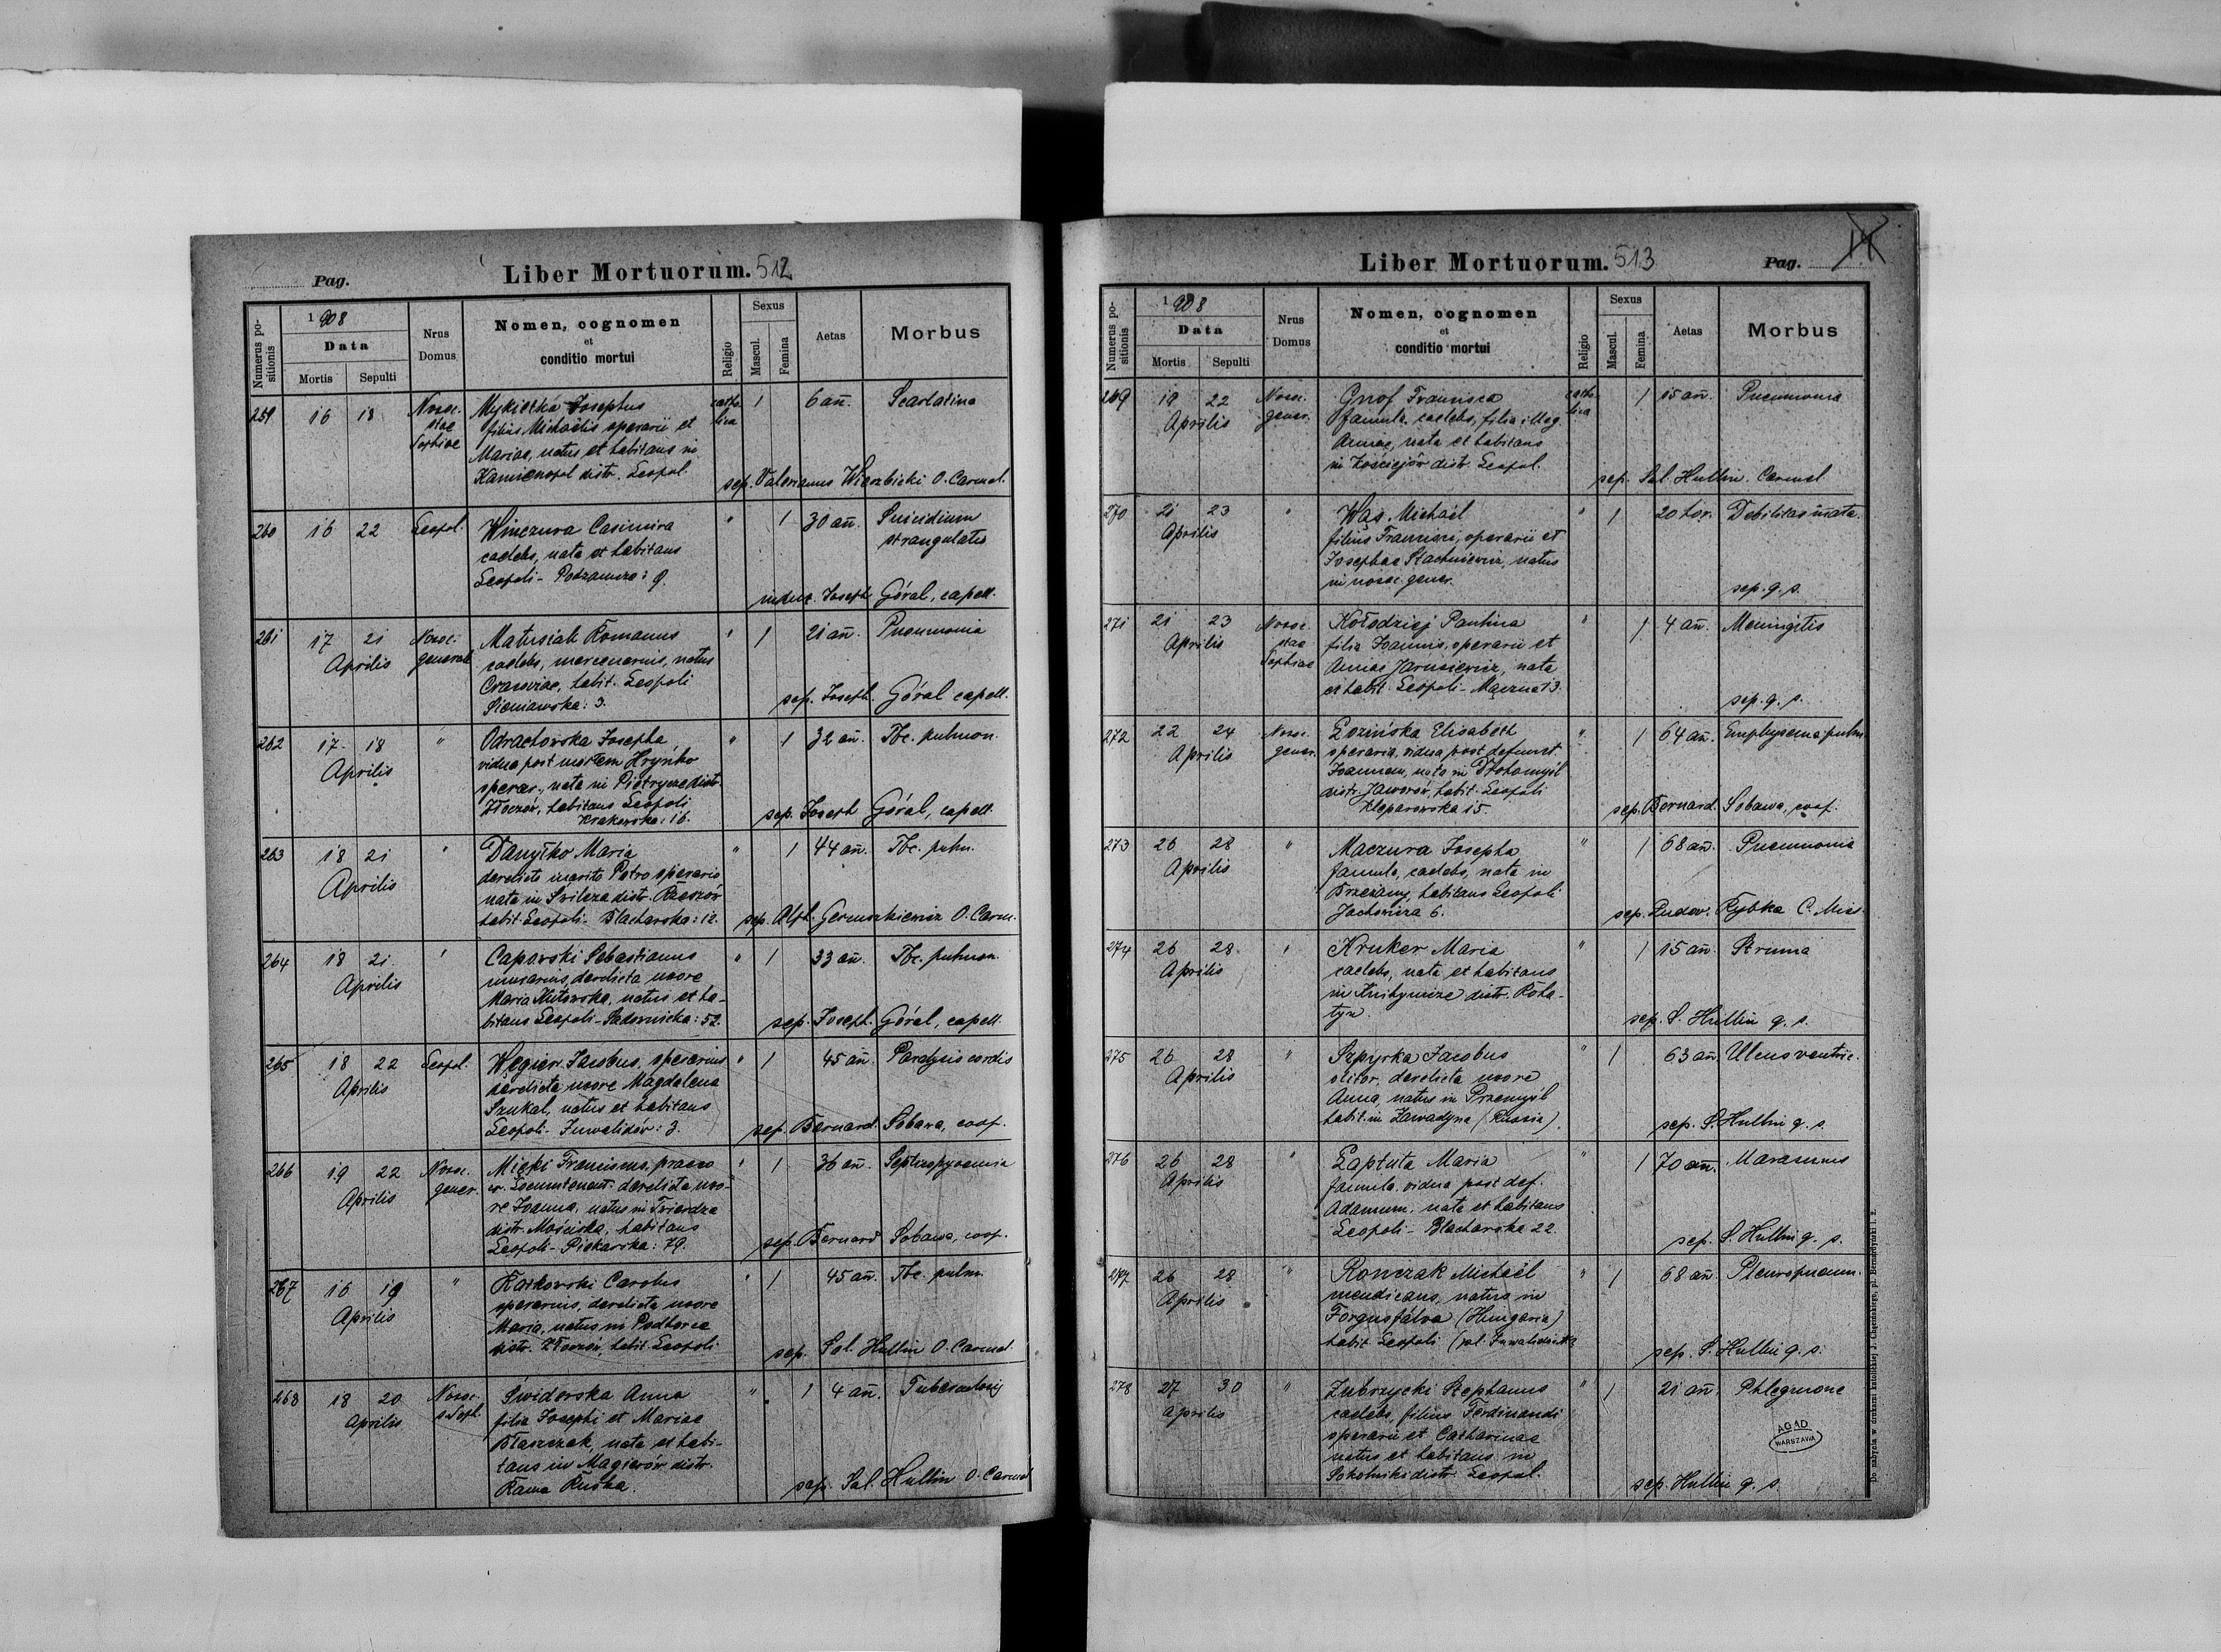 Pag.
Liber Mortuorum. 512
Numerus po-
sitionis
1908
Data
Mortis
Sepulti
Nrus
Domus
Nomen, cognomen
et
conditio mortui
Religio
Sexus
Mascul.
Femina
Aetas
Morbus
259 16 18 Nosoc. Mykietka Josephus catho- 1 6 añ. Scarlatina
stae filius Michaëlis operarii et lica
Sophiae Mariae, natus et habitans in
Kamienopol distr. Leopol.
sep. Valerianus Wierzbicki O. Carmel.
260 16 22 Leopol. Winczura Casimira " 1 30 añ. Suicidium
caelebs, nata et habitans strangulatio
Leopoli - Podzamcze: 9.
Joseph Góral, capell.
261 17 21 Nosoc. Matusiak Romanus " 1 21 añ. Pneumonia
Aprilis generale caelebs, mercenarius, natus
Cracoviae, habit. Leopoli
Sieniawska: 3.
sep. Joseph. Góral capell.
262 17 18 " Odrachowska Josepha " 1 32 añ. Tbc. pulmon.
Aprilis vidua post mortem Hryńko
operar., nata in Pietrycze distr.
Złoczów, habitans Leopoli
Krakowska: 16.
sep. Joseph Góral, capell.
263 18 21 " Danyłko Maria " 1 44 añ. Tbc. pulm.
Aprilis derelicta marito Petro operario
nata in Świlcza distr. Rzeszów
habit. Leopoli - Blacharska: 12.
sep. Alph. Geruszkiewicz O. Carm.
264 18 21 " Caparski Sebastianus " 1 33 añ. Tbc. pulmon.
Aprilis murarius, derelicta uxore
Maria Kutowska, natus et ha-
bitans Leopoli - Sadownicka: 52.
sep. Joseph. Góral, capell.
265 18 22 Leopol. Węgier Jacobus, operarius " 1 45 añ. Paralysis cordis
Aprilis derelicta uxore Magdalena
Szukal, natus et habitans
Leopoli - Inwalidów: 3.
sep. Bernard. Sobawa, coop.
266 19 22 Nosoc. Micki Franciscus, praeco " 1 36 añ. Septicopyaemia
Aprilis gener. Locumtenent. derelicta uxo-
re Joanna, natus in Twierdza
distr. Mościska, habitans
Leopoli - Piekarska: 79.
sep. Bernard Sobawa, coop.
267 16 19 " Karkowski Carolus " 1 45 añ. Tbc. pulm.
Aprilis operarius, derelicta uxore
Maria, natus in Podhorce
distr. Złoczów, habit. Leopoli
sep. Sal. Hullin O. Carmel.
268 18 20 Nosoc. Świderska Anna " 1 4 añ. Tuberculosis
Aprilis s. Soph. filia Josephi et Mariae
Błaszczak, nata et habi-
tans in Magierów distr.
Rawa Ruska.
sep. Sal. Hullin O. Carmel
Liber Mortuorum. 513
Pag. 14
Numerus po-
sitionis
1908
Data
Mortis
Sepulti
Nrus
Domus
Nomen, cognomen
et
conditio mortui
Religio
Sexus
Mascul.
Femina
Aetas
Morbus
269 19 22 Nosoc. Gnof Francisca catho- 1 15 añ. Pneumonia
Aprilis gener. famula, caelebs, filia illeg.
lica
Annae, nata et habitans
in Zaścieżów distr. Leopol.
sep. Sal. Hullin. Carmel
270 21 23 " Wąs Michaël " 1 20 hor. Debilitas innata.
Aprilis filius Francisci, operarii et
Josephae Stachniewicz, natus
in nosoc. gener.
sep. q. s.
271 21 23 Nosoc. Kołodziej Paulina " 1 4 añ. Meningitis
Aprilis stae filia Joannis, operarii et
Sophiae Annae Jarusiewicz, nata
et habit. Leopoli - Mączna 13.
sep. q. s.
272 22 24 Nosoc. Łozińska Elisabeth " 1 64 añ. Emphysema pulm.
Aprilis gener. operaria, vidua post defunct
Joannem, nata in Tłohomyśl
distr. Jaworów, habit. Leopoli
Kleparowska 15.
sep. Bernard. Sobawa, coop.
273 26 28 " Maczura Josepha " 1 68 añ. Pneumonia
Aprilis famula, caelebs, nata in
Brzeżany, habitans Leopoli
Jachowicza 6.
sep. Ludov. Rybka C. Miss.
274 26 28 " Kruker Maria " 1 15 añ. Struma
Aprilis caelebs, nata et habitans
in Knihynicze distr. Roha-
tyn.
sep. S. Hullin q. s.
275 26 28 " Szpyrka Jacobus " 1 63 añ. Ulcus ventric.
Aprilis olitor, derelicta uxore
Anna, natus in Przemyśl
habit. in Zawadyna (Russia).
sep. S. Hullin q. s.
276 26 28 " Łaptuta Maria " 1 70 añ. Marasmus
Aprilis famula, vidua post def.
Adamum, nata et habitans
Leopoli - Blacharska 22.
sep. S. Hullin q. s.
277 26 28 " Ronczak Michaël " 1 68 añ. Pleuropneum.
Aprilis mendicans, natus in
Forgusfálva (Hungaria)
habit. Leopoli
sep. S. Hullin q. s.
278 27 30 " Zubrzycki Stephanus " 1 21 añ. Phlegmone
Aprilis caelebs, filius Ferdinandi
operarii et Catharinae
natus et habitans in
Sokolniki distr. Leopol.
sep. Hullin q. s.
AGAD
WARSZAWA
Do nabycia w drukarni katolickiej J. Chęcińskiego, pl. Bernardyński l. 2.